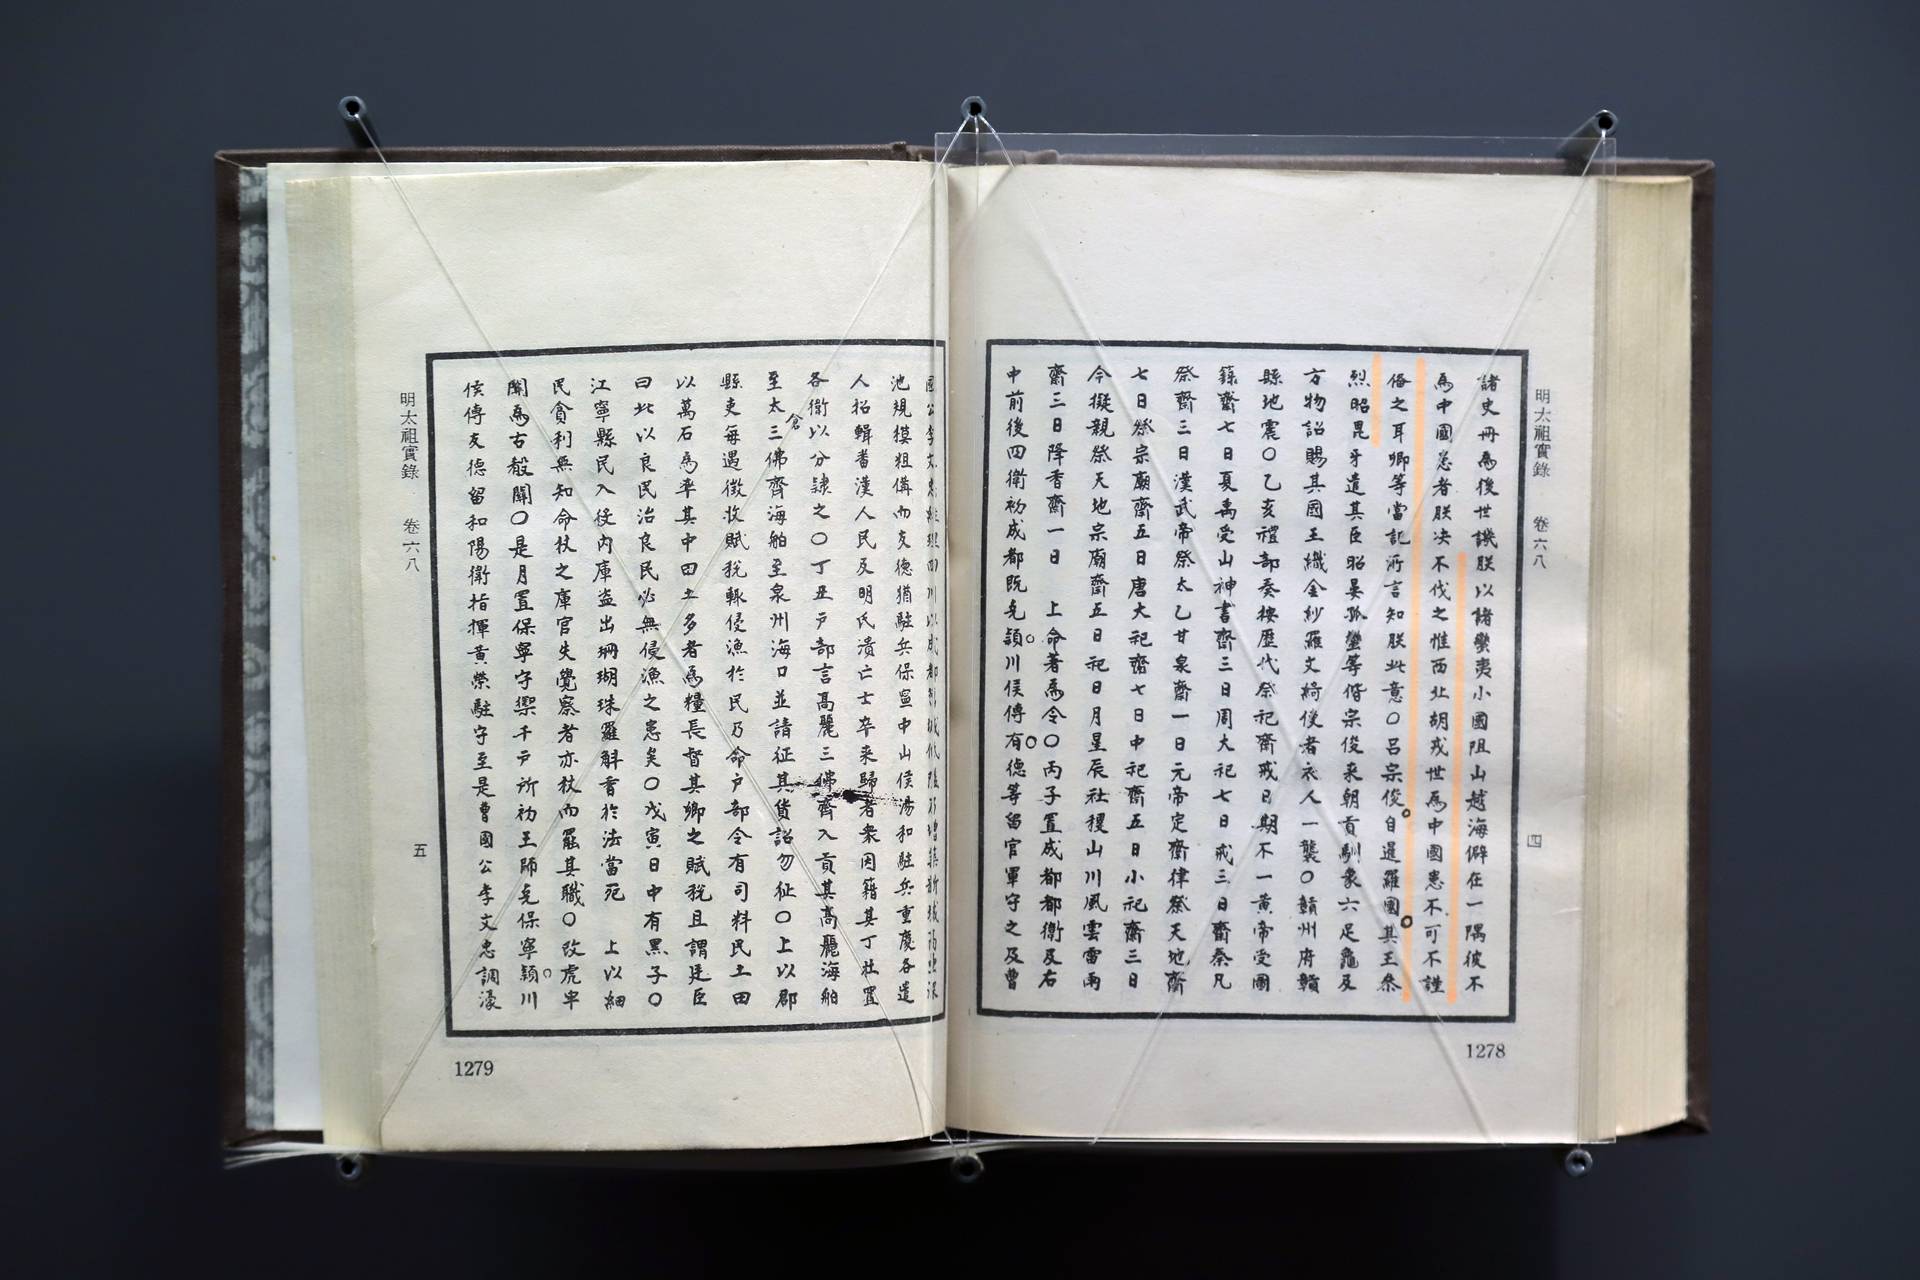 明太祖實錄 卷六八 四
諸史冊為後世譏朕以諸蠻夷小國阻山越海僻在一隅彼不
為中國患者朕決不伐之惟西北胡戎世為中國患不可不謹
俻之耳卿等當記所言知朕此意〇呂宗俊自暹羅國其王叅
烈昭毘牙遣其臣昭晏孤蠻等偕宗俊来朝貢馴象六足龜及
方物詔賜其國王織金紗羅文綺使者衣人一襲〇贛州府贛
縣地震〇乙亥禮部奏按歷代祭祀齋戒日期不一黄帝受圖
籙齋七日夏禹受山神書齋三日周大祀七日戒三日齋秦凡
祭齋三日漢武帝祭太乙甘泉齋一日元帝定齋律祭天地齋
七日祭宗廟齋五日唐大祀齋七日中祀齋五日小祀齋三日
今擬親祭天地宗廟齋五日祀日月星辰社稷山川風雲雷雨
齋三日降香齋一日　上命著為令〇丙子置成都都衛及右
中前後四衛初成都既克潁川侯傅有德等留官軍守之及曹
1278
國公李文忠經理四川以成都舊城低隘乃增築新城高垣深
池規模粗備而友德猶駐兵保寧中山侯湯和駐兵重慶各遣
人招輯番漢人民及明氏潰亡士卒来歸者衆因籍其丁壯置
各衛以分隷之〇丁丑户部言髙麗三佛齊入貢其髙麗海舶
至太倉三佛齊海舶至泉州海口並請征其貨詔勿征〇上以郡
縣吏每遇徵收賦稅輒侵漁於民乃命户部令有司料民土田
以萬石為率其中田土多者為糧長督其鄉之賦稅且謂廷臣
曰此以良民治良民必無侵漁之患矣〇戊寅日中有黒子〇
江寧縣民入役內庫盗出珊瑚珠羅觧香於法當死　上以細
民貪利無知命杖之庫官失覺察者亦杖而罷其職〇改虎牢
關為古殽關〇是月置保寧守禦千户所初王師克保寧潁川
侯傅友德留和陽衛指揮黄榮駐守至是曹國公李文忠調濠
明太祖實錄 卷六八 五
1279